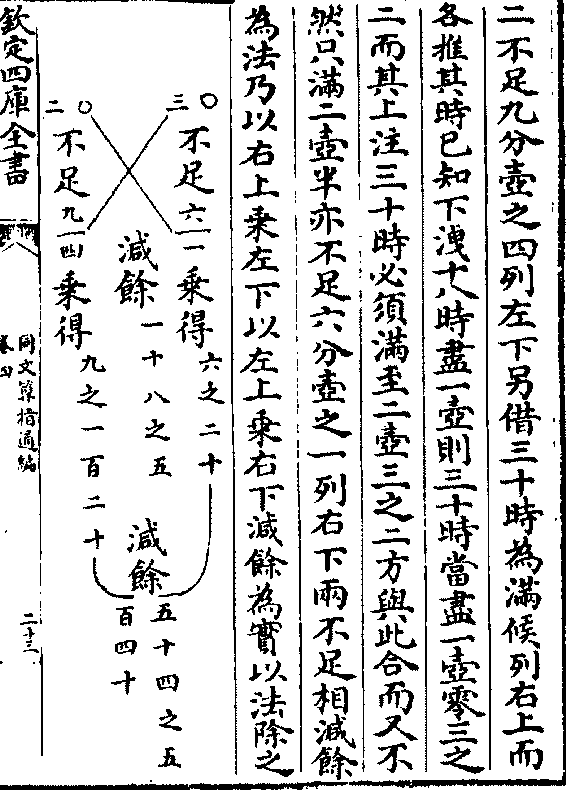 二不足九分壺之四列左下另借三十時為滿候列右上而
各推其時已知下洩十八時盡一壺則三十時當盡一壺零三之
二而其上注三十時必須滿至二壺三之二方與此合而又不
然只滿二壺半亦不足六分壺之一列右下兩不足相減餘
為法乃以右上乘左下以左上乘右下減餘為實以法除之
三〇 不足六一 乘得 六之二十
減餘 一十八之五
減餘 五十四之五百四十
二〇 不足九四 乘得 九之一百二十
欽定四庫全書
同文算指通編
二十三